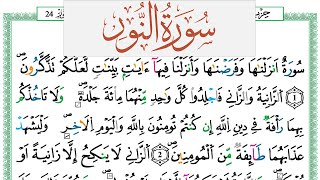 24
سُورَةُ النُّورِ
سُورَةٌ اَنْزَلْنٰهَا وَفَرَضْنٰهَا وَاَنْزَلْنَا فِيْهَآ اٰيٰتٍۭ بَيِّنٰتٍ لَّعَلَّكُمْ تَذَكَّرُوْنَ
﴿1﴾ اَلزَّانِيَةُ وَالزَّانِيْ فَاجْلِدُوْا كُلَّ وَاحِدٍ مِّنْهُمَا مِائَةَ جَلْدَةٍ ۖ وَّلَا تَاْخُذْكُمْ
بِهِمَا رَاْفَةٌ فِيْ دِيْنِ اللّٰهِ اِنْ كُنْتُمْ تُؤْمِنُوْنَ بِاللّٰهِ وَالْيَوْمِ الْاٰخِرِ ۚ وَلْيَشْهَدْ
عَذَابَهُمَا طَآئِفَةٌ مِّنَ الْمُؤْمِنِيْنَ ﴿2﴾ اَلزَّانِيْ لَا يَنْكِحُ اِلَّا زَانِيَةً اَوْ